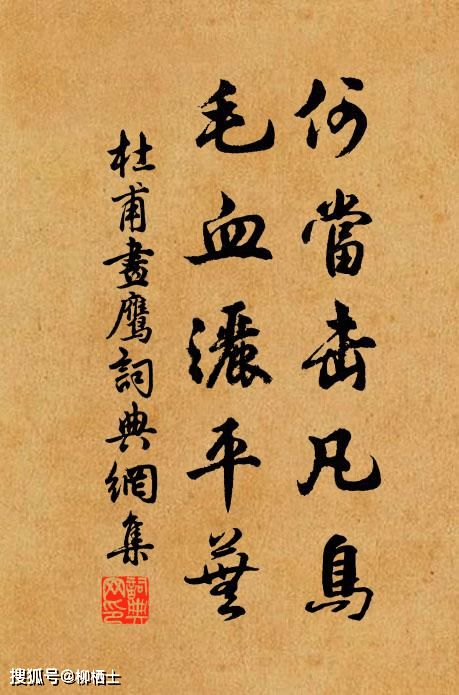 何當击凡鳥
毛血灑平蕪
杜甫畫鹰詞典網集
詞典网印
搜狐号@柳栖士